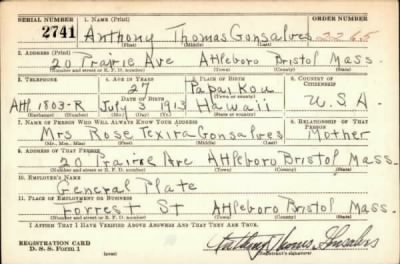 SERIAL NUMBER 1. NAME (Print) ORDER NUMBER
2741 Anthony Thomas Gonsalves 2265
(First) (Middle) (Last)
2. ADDRESS (Print)
20 Prairie Ave Attleboro Bristol Mass.
(Number and street or R. F. D. number) (Town) (County) (State)
3. TELEPHONE 4. AGE IN YEARS 5. PLACE OF BIRTH 6. COUNTRY OF CITIZENSHIP
27 Papaikou
DATE OF BIRTH (Town or county)
Att 1803-R July 3 1913 Hawaii U.S.A.
(Exchange) (Number) (Mo.) (Day) (Yr.) (State or country)
7. NAME OF PERSON WHO WILL ALWAYS KNOW YOUR ADDRESS 8. RELATIONSHIP OF THAT PERSON
Mrs Rose Texira Gonsalves Mother
(Mr., Mrs., Miss) (First) (Middle) (Last)
9. ADDRESS OF THAT PERSON
20 Prairie Ave Attleboro Bristol Mass.
(Number and street or R. F. D. number) (Town) (County) (State)
10. EMPLOYER'S NAME
General Plate
11. PLACE OF EMPLOYMENT OR BUSINESS
Forrest St Attleboro Bristol Mass.
(Number and street or R. F. D. number) (Town) (County) (State)
I AFFIRM THAT I HAVE VERIFIED ABOVE ANSWERS AND THAT THEY ARE TRUE.
REGISTRATION CARD
D. S. S. Form 1 (over) Anthony Thomas Gonsalves
(Registrant's signature)